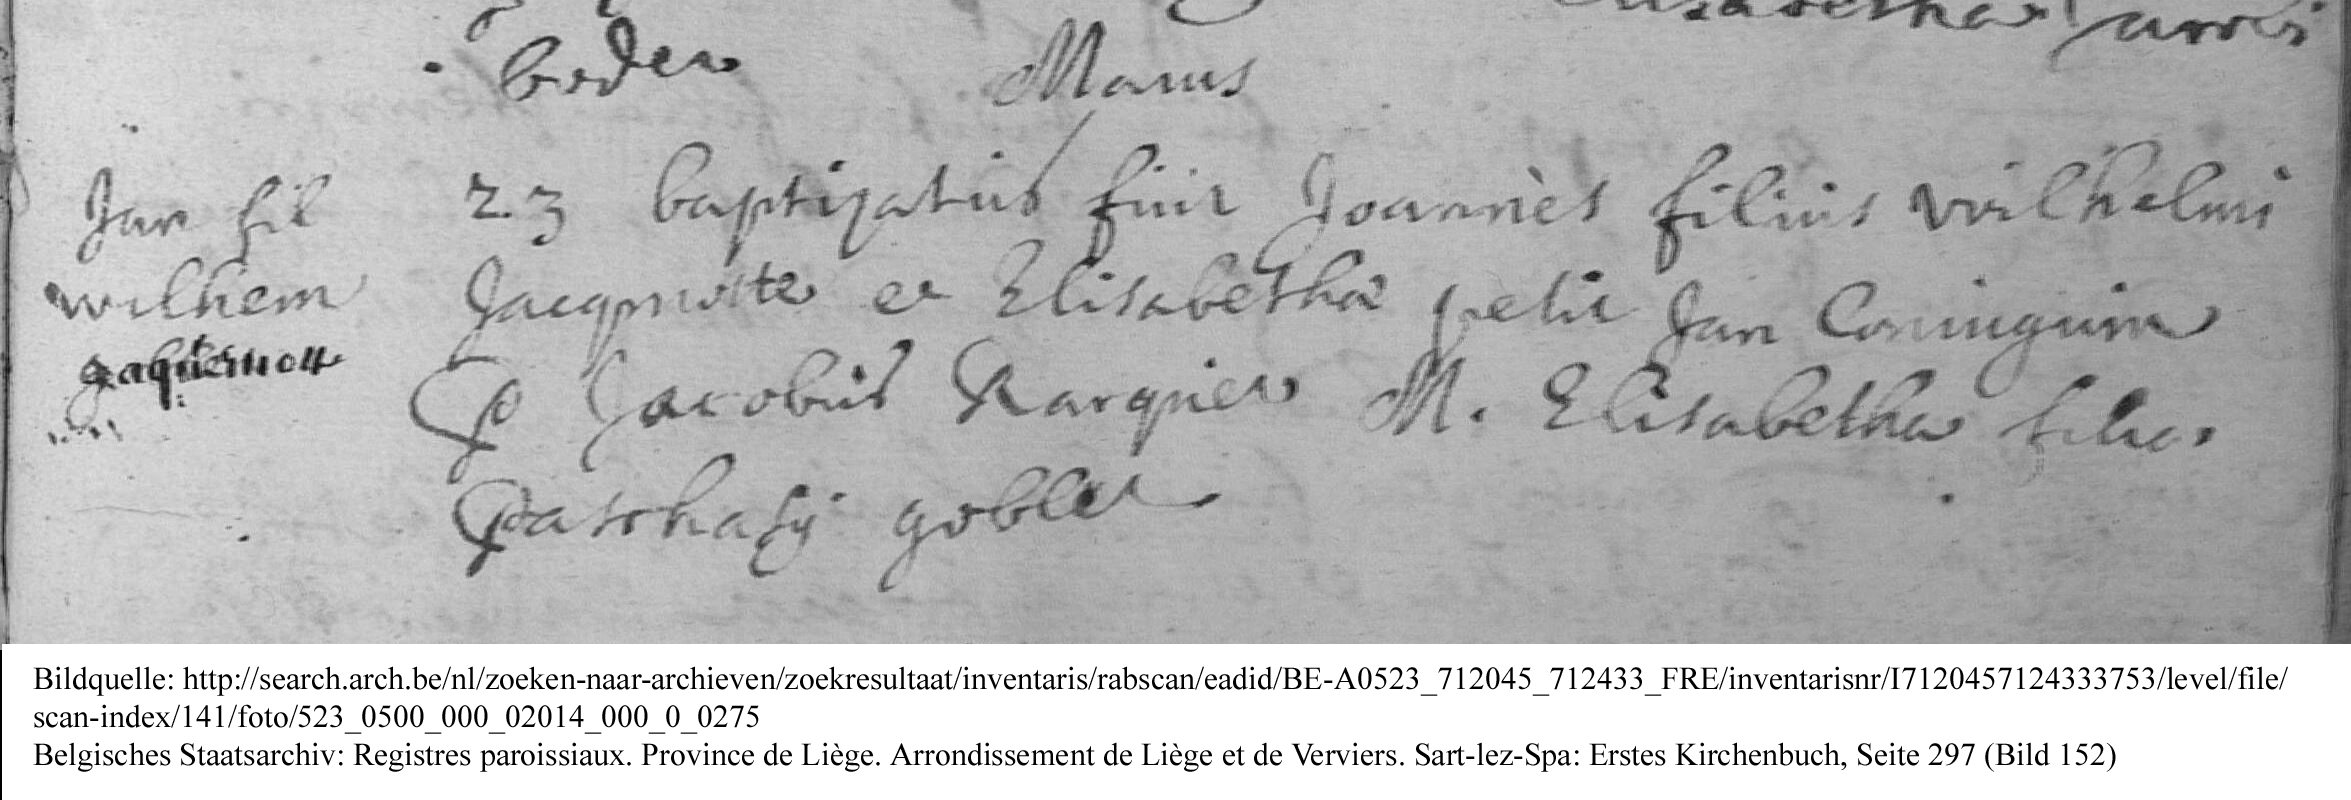 Elisabetha
boden Maius
Jan fil
wilhem
gaquemott
23 baptizatus fuit Joannès filius wilhelmi
Jacqmotte et Elisabetha petit Jan Coninguin
P Jacobus Xarquier M. Elisabetha filia
Paschasij goblet
Bildquelle: http://search.arch.be/nl/zoeken-naar-archieven/zoekresultaat/inventaris/rabscan/eadid/BE-A0523_712045_712433_FRE/inventarisnr/I7120457124333753/level/file/
scan-index/141/foto/523_0500_000_02014_000_0_0275
Belgisches Staatsarchiv: Registres paroissiaux. Province de Liège. Arrondissement de Liège et de Verviers. Sart-lez-Spa: Erstes Kirchenbuch, Seite 297 (Bild 152)